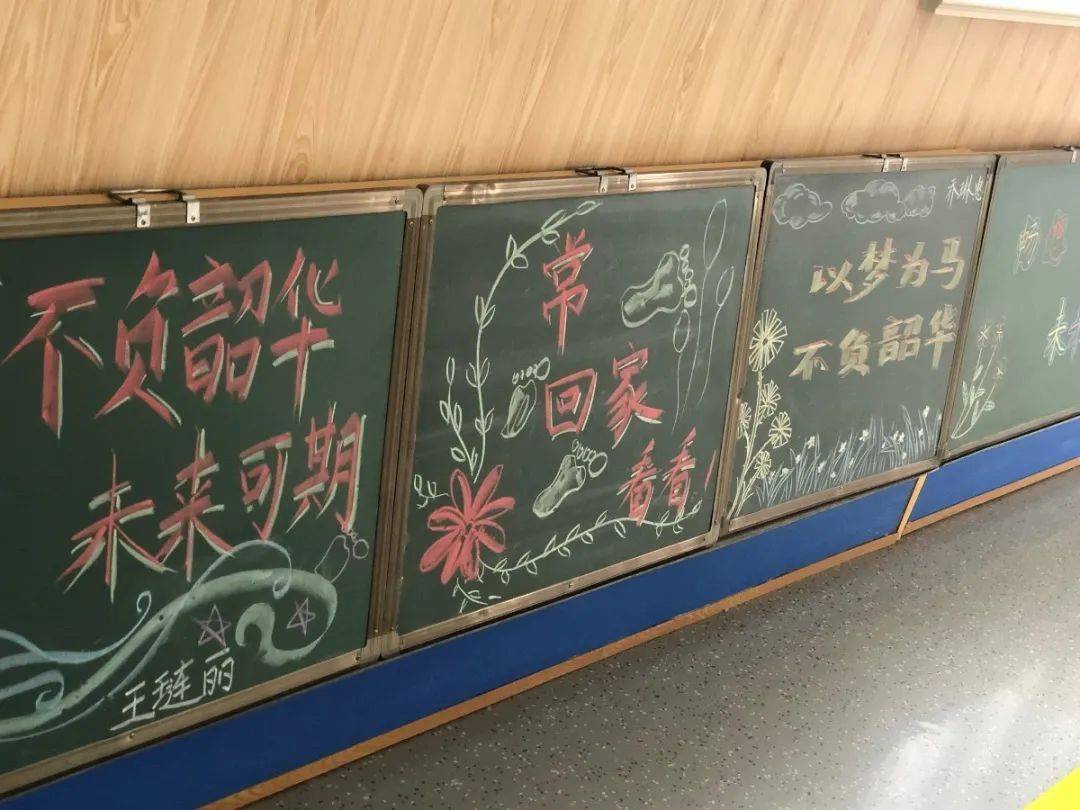 不负韶华
未来可期
常
回家
看看！
以梦为马
不负韶华
未